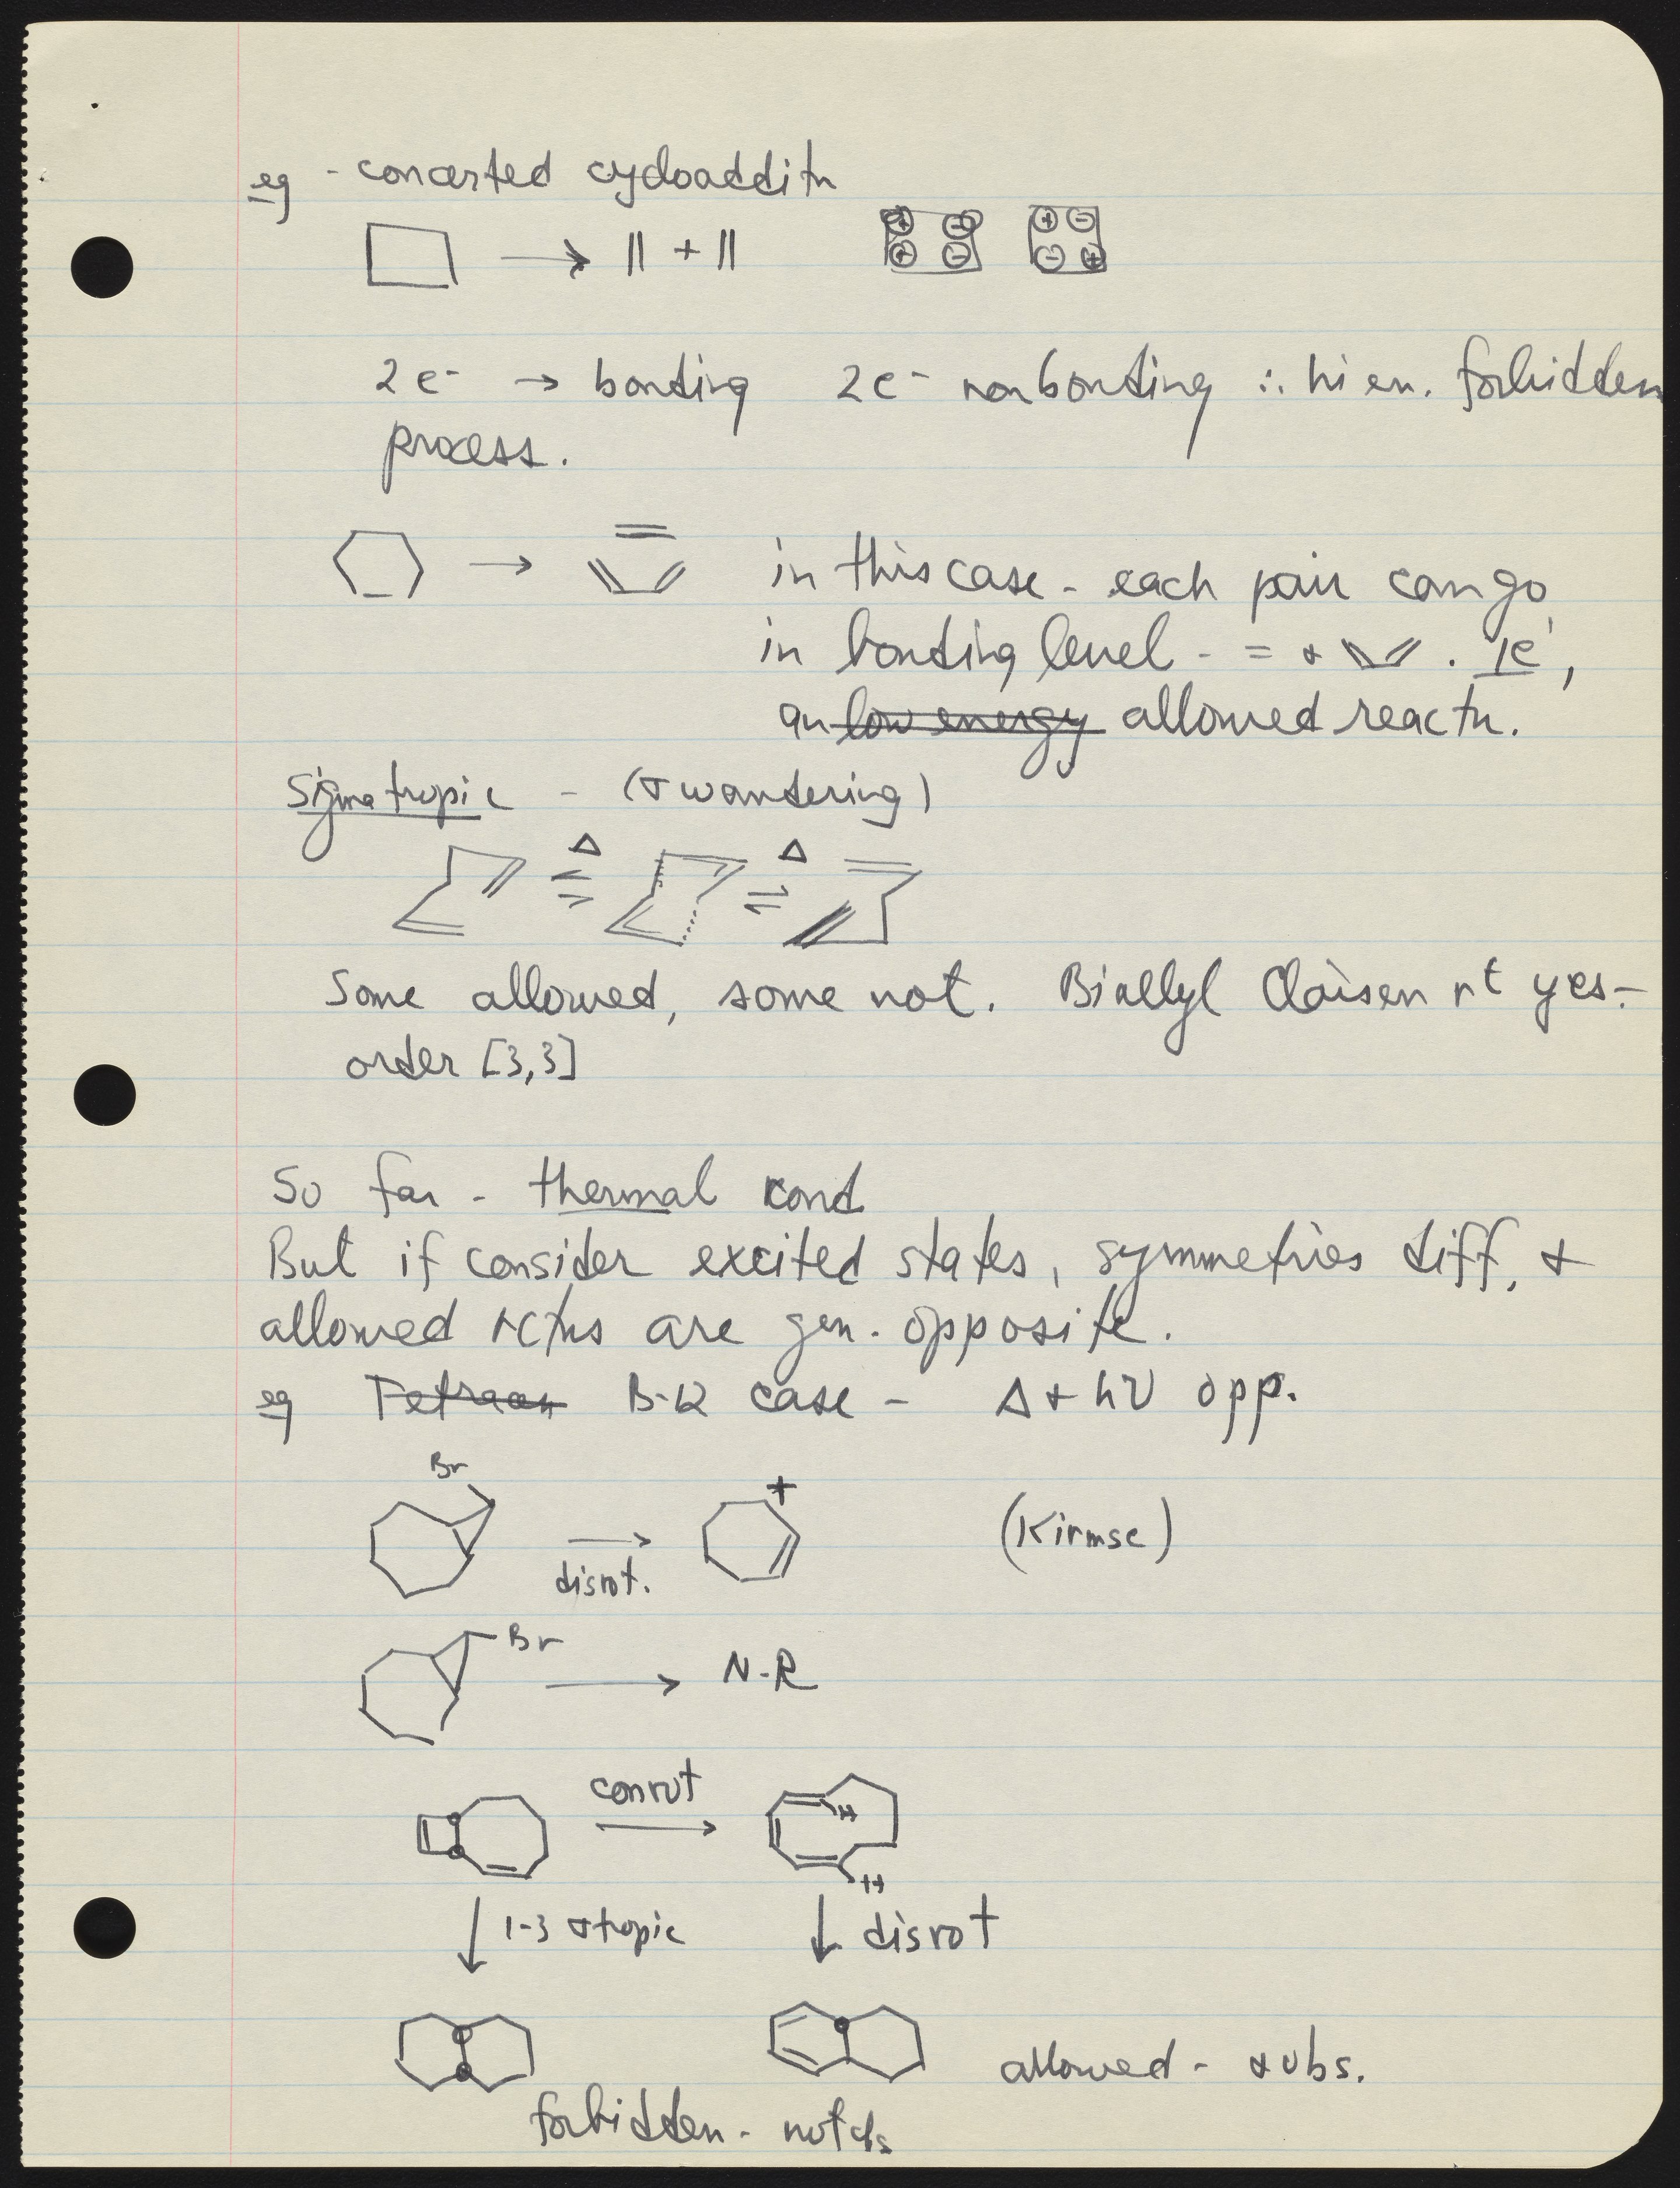 eg - concerted cycloadditn
→ || + || + - + - + - - +
2e- → bonding 2e- nonbonding ∴ hi en. forbidden
process.
→ in this case - each pair can go
in bonding level - = + . ie,
an low energy allowed reactn.
Sigmatropic - (σ wandering)
Δ Δ
Some allowed, some not. Biallyl Claisen yes -
order [3,3]
So far - thermal cond
But if consider excited states, symmetries diff, +
allowed rctns are gen. opposite.
eg B-R case - Δ + hν opp.
Br +
→ (Kirmse)
disrot.
Br → N.R
conrot
→ H
H
↓ 1-3 σtropic ↓ disrot
allowed - + obs.
forbidden - not obs